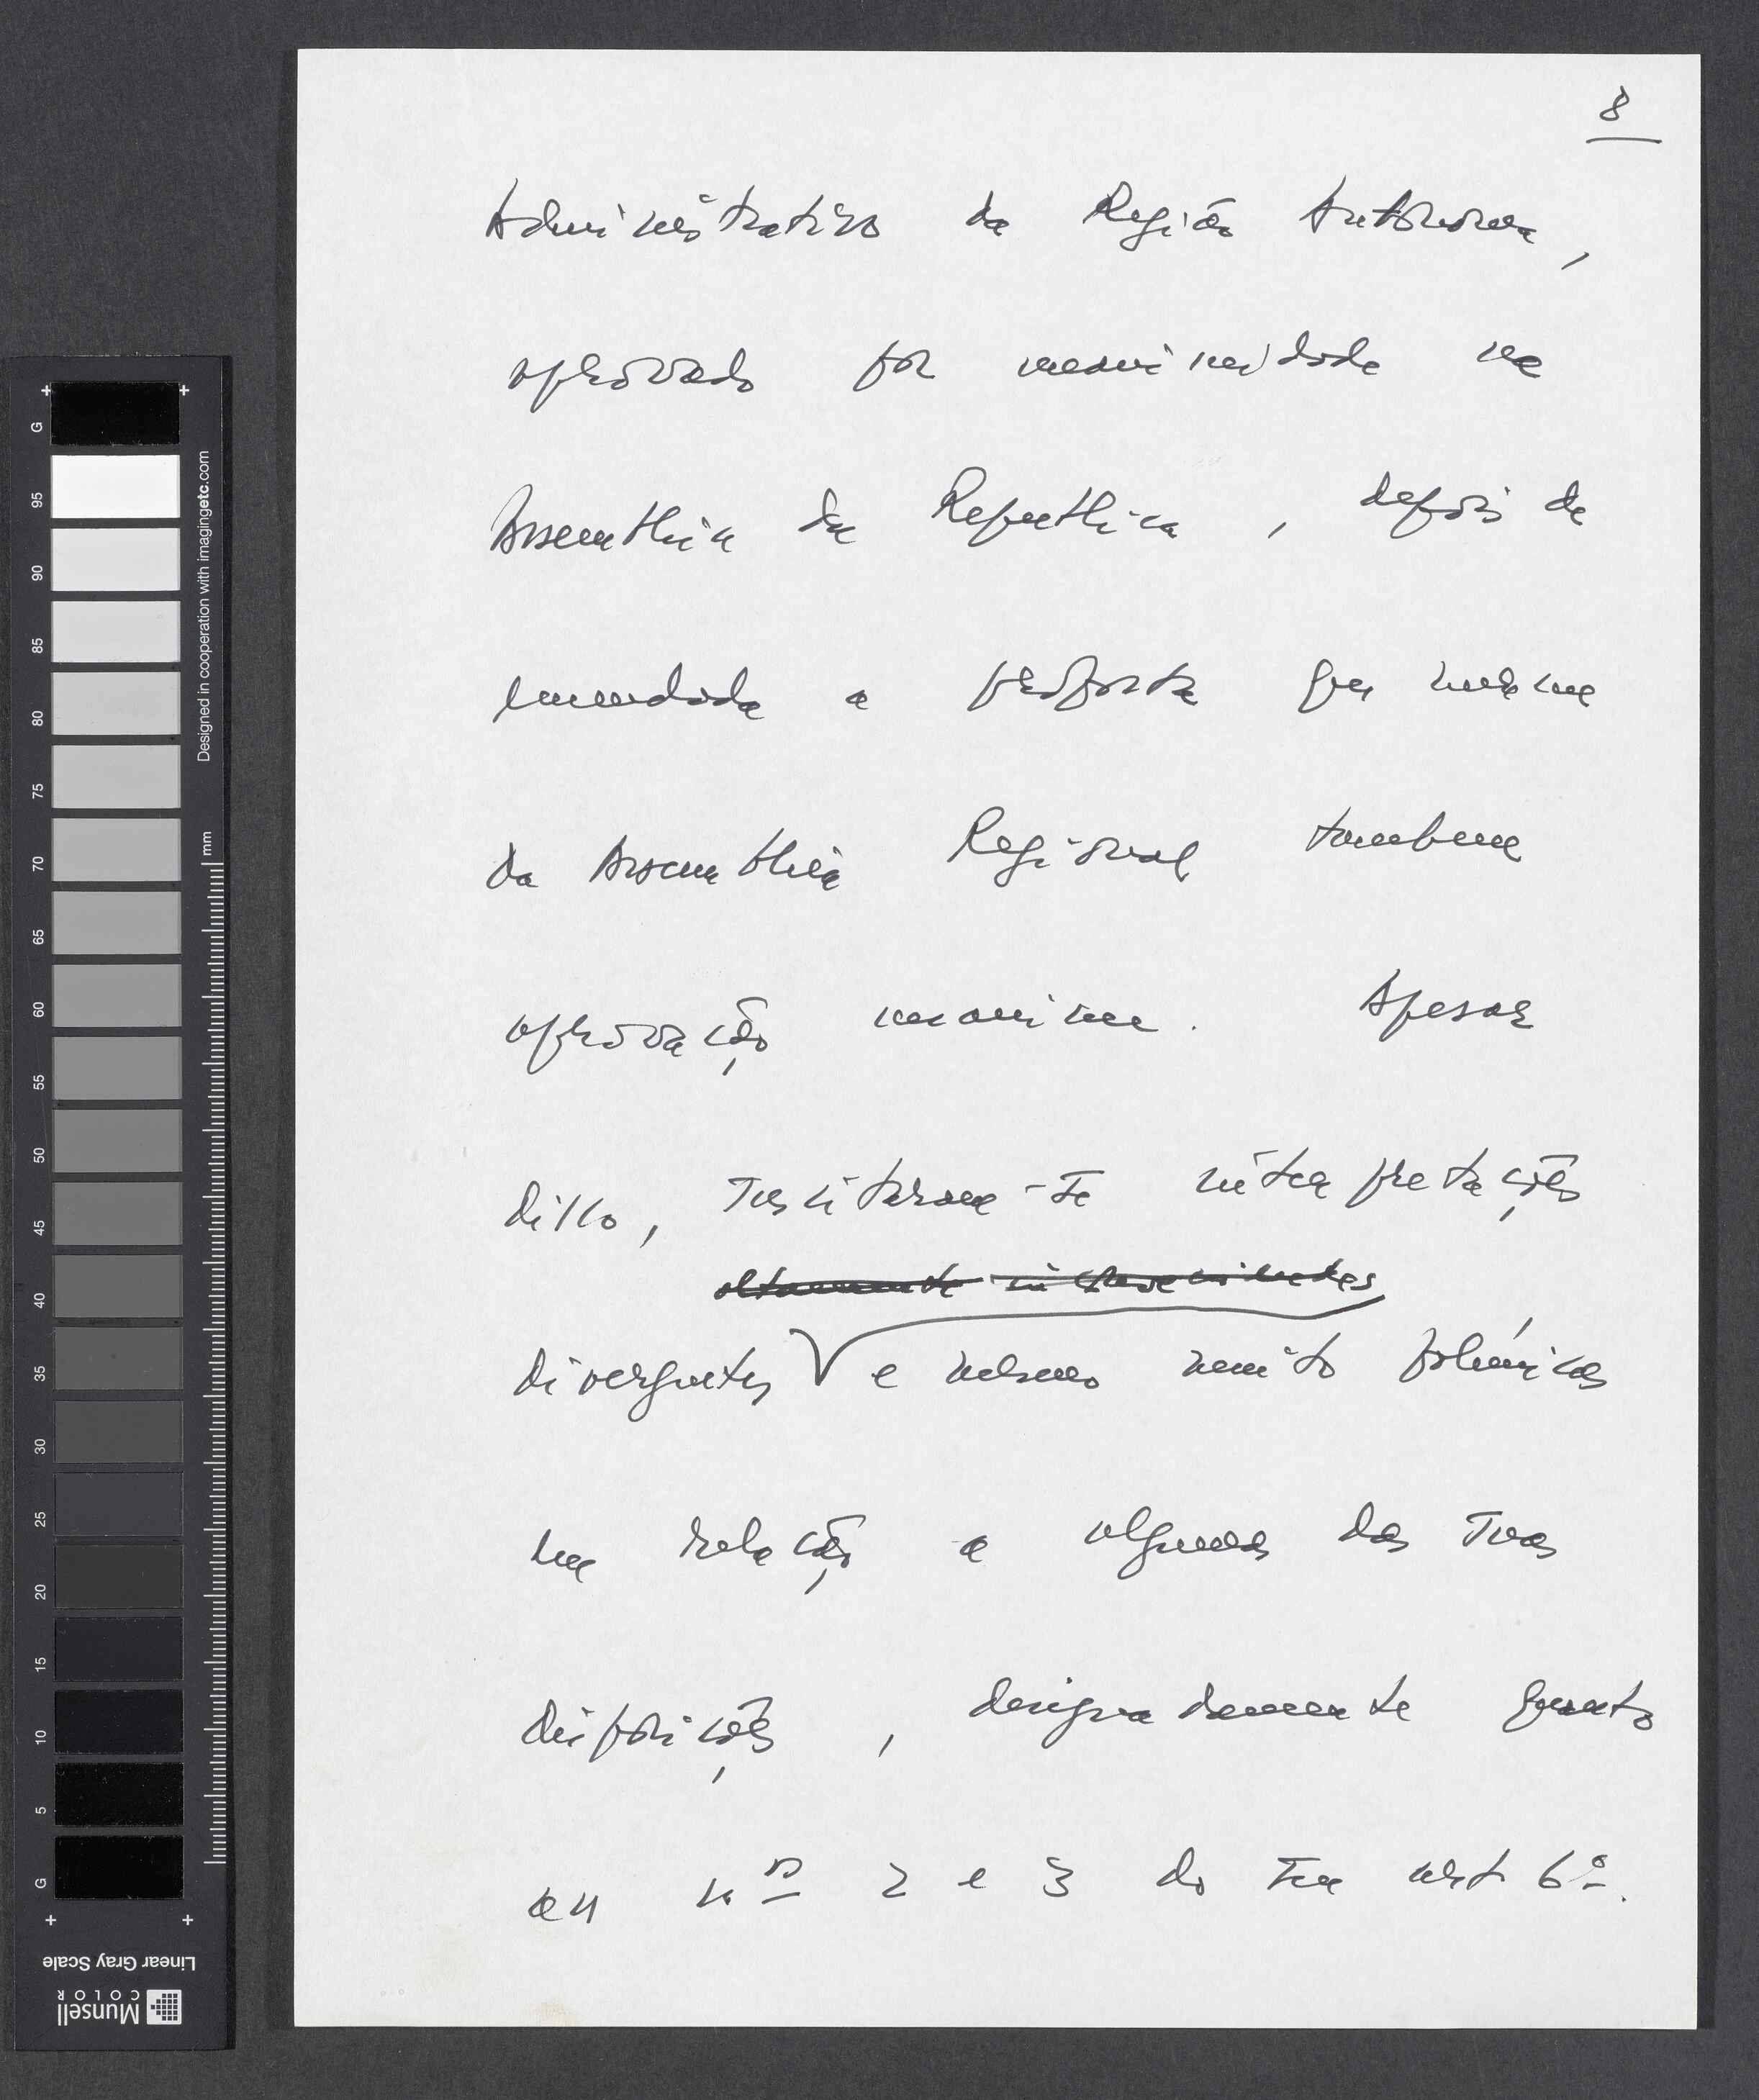 8
Administrativo da Região Autonoma,
aprovado por unanimidade na
Assembleia da Republica, depois de
emendada a proposta que
da Assembleia Regional tambem
aprovação unanime. Apesar
disso, suscitaram-se interpretações
altamente inconvenientes
divergentes e mesmo muito polémicas
em relação a algumas das suas
disposições, designadamente quanto
aos nºs 2 e 3 do seu art 6º.
G
95
90
85
80
75
70
65
60
55
50
45
40
35
30
25
20
15
10
5
G
mm
Designed in cooperation with imagingetc.com
Linear Gray Scale
Munsell
COLOR